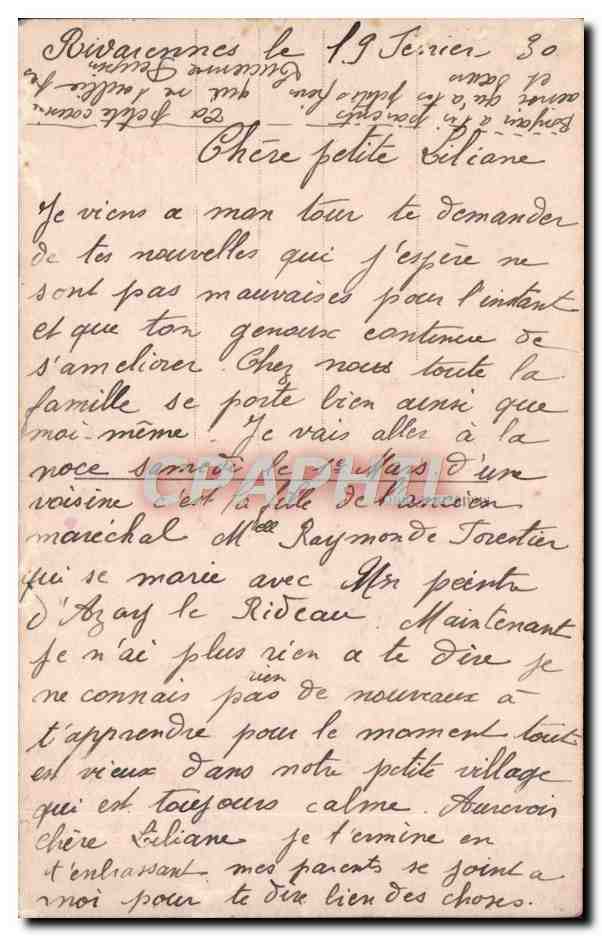 Rivarennes le 19 Fevrier 30
Chère petite Liliane
Je viens a mon tour te demander
de tes nouvelles qui j'espère ne
sont pas mauvaises pour l'instant
et que ton genoux continue de
s'ameliorer. Chez nous toute la
famille se porte bien ainsi que
moi-même. Je vais aller à la
noce samedi le 1e Mars d'une
voisine c'est la fille de l'ancien
maréchal Melle Raymonde Forestier
qui se marie avec Un peintre
d'Azay le Rideau. Maintenant
je n'ai plus rien a te dire je
ne connais pas rien de nouveaux à
t'apprendre pour le moment tout
est vieux dans notre petite village
qui est toujours calme. Aurevoir
chère Liliane je termine en
t'enbrassant. mes parents se joint a
moi pour te dire bien des choses.
Ta petite cousine
qui ne t'oublie pas
Lucienne
Bonjour a tes parents
ainsi qu'a tes petits frère
et sœur
CPARHTI